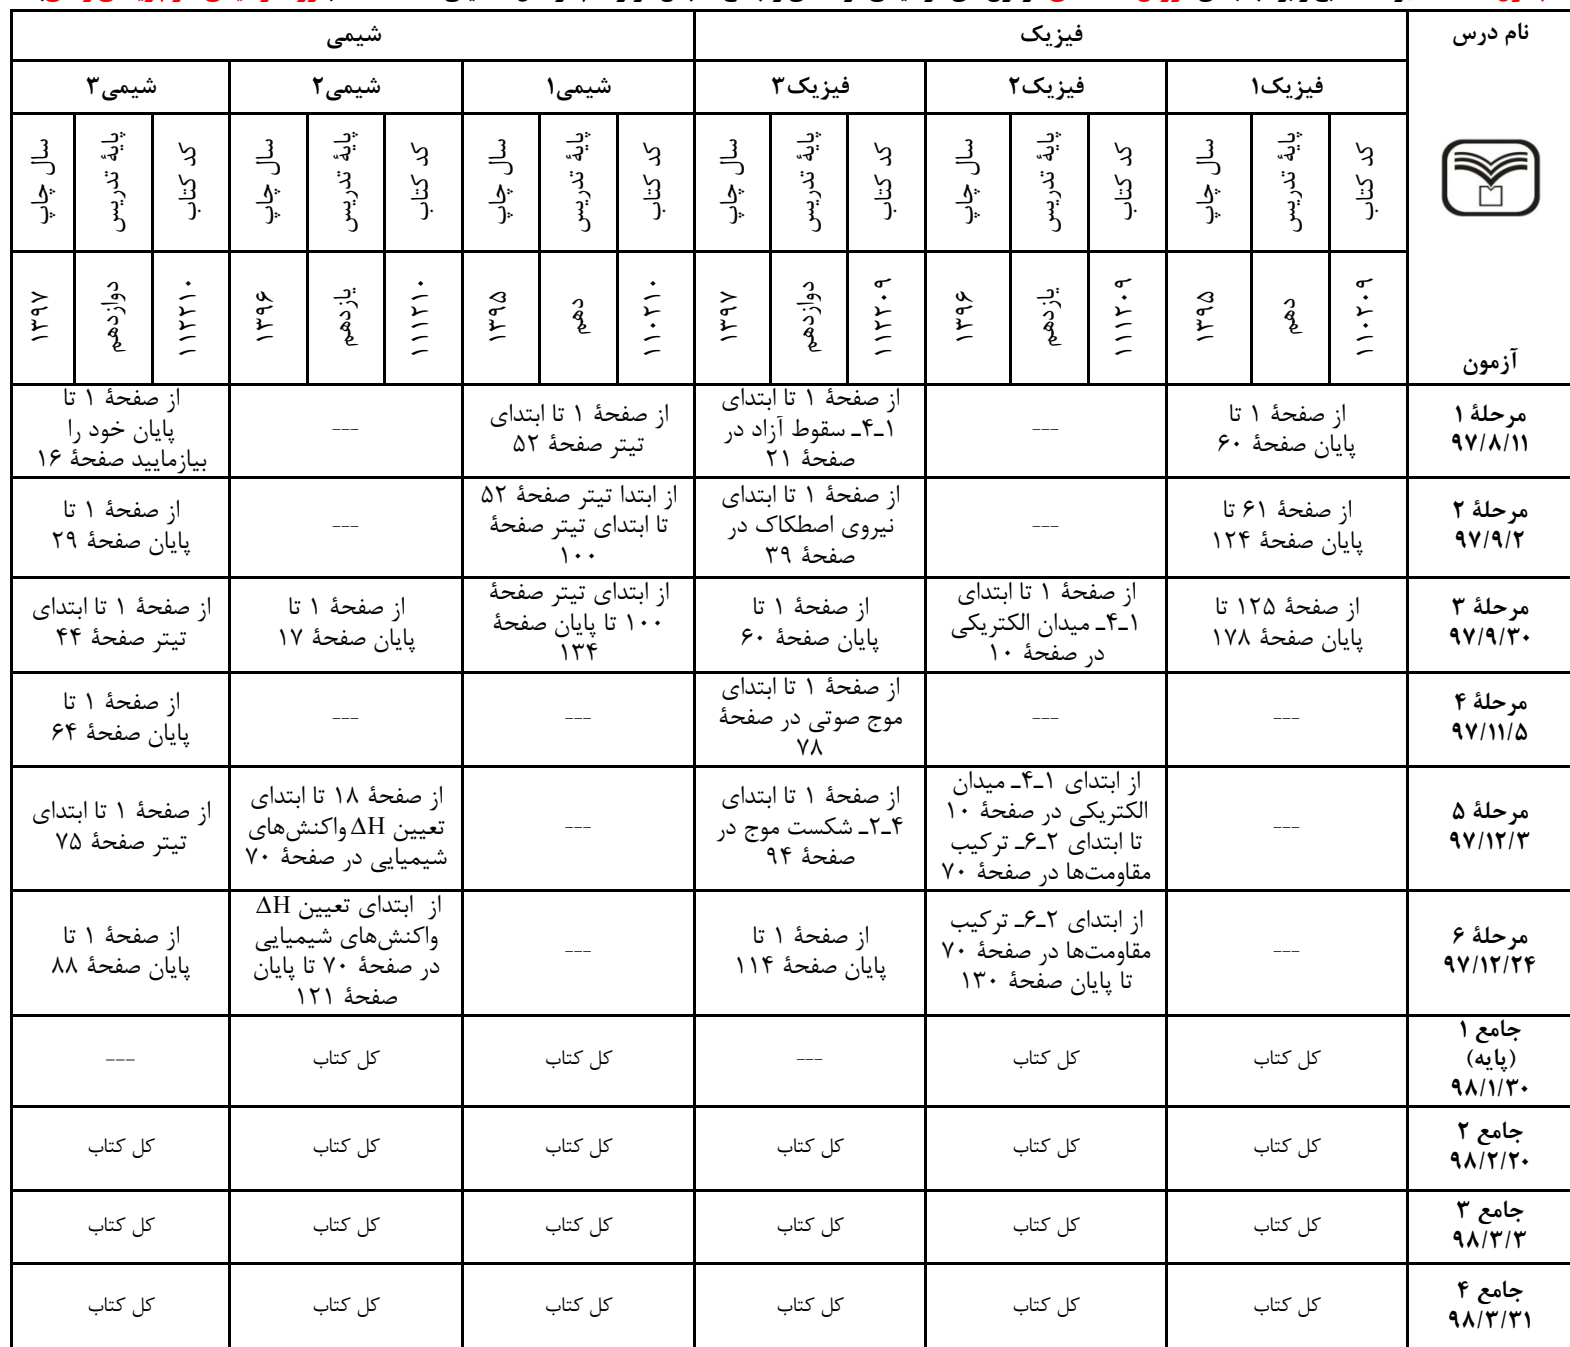 نام درس
فیزیک
شیمی
فیزیک۱
فیزیک۲
فیزیک۳
شیمی۱
شیمی۲
شیمی۳
کد کتاب
پایهٔ تدریس
سال چاپ
کد کتاب
پایهٔ تدریس
سال چاپ
کد کتاب
پایهٔ تدریس
سال چاپ
کد کتاب
پایهٔ تدریس
سال چاپ
کد کتاب
پایهٔ تدریس
سال چاپ
کد کتاب
پایهٔ تدریس
سال چاپ
آزمون
۱۱۰۲۰۹
دهم
۱۳۹۵
۱۱۱۲۰۹
یازدهم
۱۳۹۶
۱۱۲۲۰۹
دوازدهم
۱۳۹۷
۱۱۰۲۱۰
دهم
۱۳۹۵
۱۱۱۲۱۰
یازدهم
۱۳۹۶
۱۱۲۲۱۰
دوازدهم
۱۳۹۷
مرحلهٔ ۱
۹۷/۸/۱۱
از صفحهٔ ۱ تا
پایان صفحهٔ ۶۰
---
از صفحهٔ ۱ تا ابتدای
۱ـ۴ـ سقوط آزاد در
صفحهٔ ۲۱
از صفحهٔ ۱ تا ابتدای
تیتر صفحهٔ ۵۲
---
از صفحهٔ ۱ تا
پایان خود را
بیازمایید صفحهٔ ۱۶
مرحلهٔ ۲
۹۷/۹/۲
از صفحهٔ ۶۱ تا
پایان صفحهٔ ۱۲۴
---
از صفحهٔ ۱ تا ابتدای
نیروی اصطکاک در
صفحهٔ ۳۹
از ابتدا تیتر صفحهٔ ۵۲
تا ابتدای تیتر صفحهٔ
۱۰۰
---
از صفحهٔ ۱ تا
پایان صفحهٔ ۲۹
مرحلهٔ ۳
۹۷/۹/۳۰
از صفحهٔ ۱۲۵ تا
پایان صفحهٔ ۱۷۸
از صفحهٔ ۱ تا ابتدای
۱ـ۴ـ میدان الکتریکی
در صفحهٔ ۱۰
از صفحهٔ ۱ تا
پایان صفحهٔ ۶۰
از ابتدای تیتر صفحهٔ
۱۰۰ تا پایان صفحهٔ
۱۳۴
از صفحهٔ ۱ تا
پایان صفحهٔ ۱۷
از صفحهٔ ۱ تا ابتدای
تیتر صفحهٔ ۴۴
مرحلهٔ ۴
۹۷/۱۱/۵
---
---
از صفحهٔ ۱ تا ابتدای
موج صوتی در صفحهٔ
۷۸
---
---
از صفحهٔ ۱ تا
پایان صفحهٔ ۶۴
مرحلهٔ ۵
۹۷/۱۲/۳
---
از ابتدای ۱ـ۴ـ میدان
الکتریکی در صفحهٔ ۱۰
تا ابتدای ۲ـ۶ـ ترکیب
مقاومت‌ها در صفحهٔ ۷۰
از صفحهٔ ۱ تا ابتدای
۴ـ۲ـ شکست موج در
صفحهٔ ۹۴
---
از صفحهٔ ۱۸ تا ابتدای
تعیین ΔH واکنش‌های
شیمیایی در صفحهٔ ۷۰
از صفحهٔ ۱ تا ابتدای
تیتر صفحهٔ ۷۵
مرحلهٔ ۶
۹۷/۱۲/۲۴
---
از ابتدای ۲ـ۶ـ ترکیب
مقاومت‌ها در صفحهٔ ۷۰
تا پایان صفحهٔ ۱۳۰
از صفحهٔ ۱ تا
پایان صفحهٔ ۱۱۴
---
از ابتدای تعیین ΔH
واکنش‌های شیمیایی
در صفحهٔ ۷۰ تا پایان
صفحهٔ ۱۲۱
از صفحهٔ ۱ تا
پایان صفحهٔ ۸۸
جامع ۱
(پایه)
۹۸/۱/۳۰
کل کتاب
کل کتاب
---
کل کتاب
کل کتاب
---
جامع ۲
۹۸/۲/۲۰
کل کتاب
کل کتاب
کل کتاب
کل کتاب
کل کتاب
کل کتاب
جامع ۳
۹۸/۳/۳
کل کتاب
کل کتاب
کل کتاب
کل کتاب
کل کتاب
کل کتاب
جامع ۴
۹۸/۳/۳۱
کل کتاب
کل کتاب
کل کتاب
کل کتاب
کل کتاب
کل کتاب